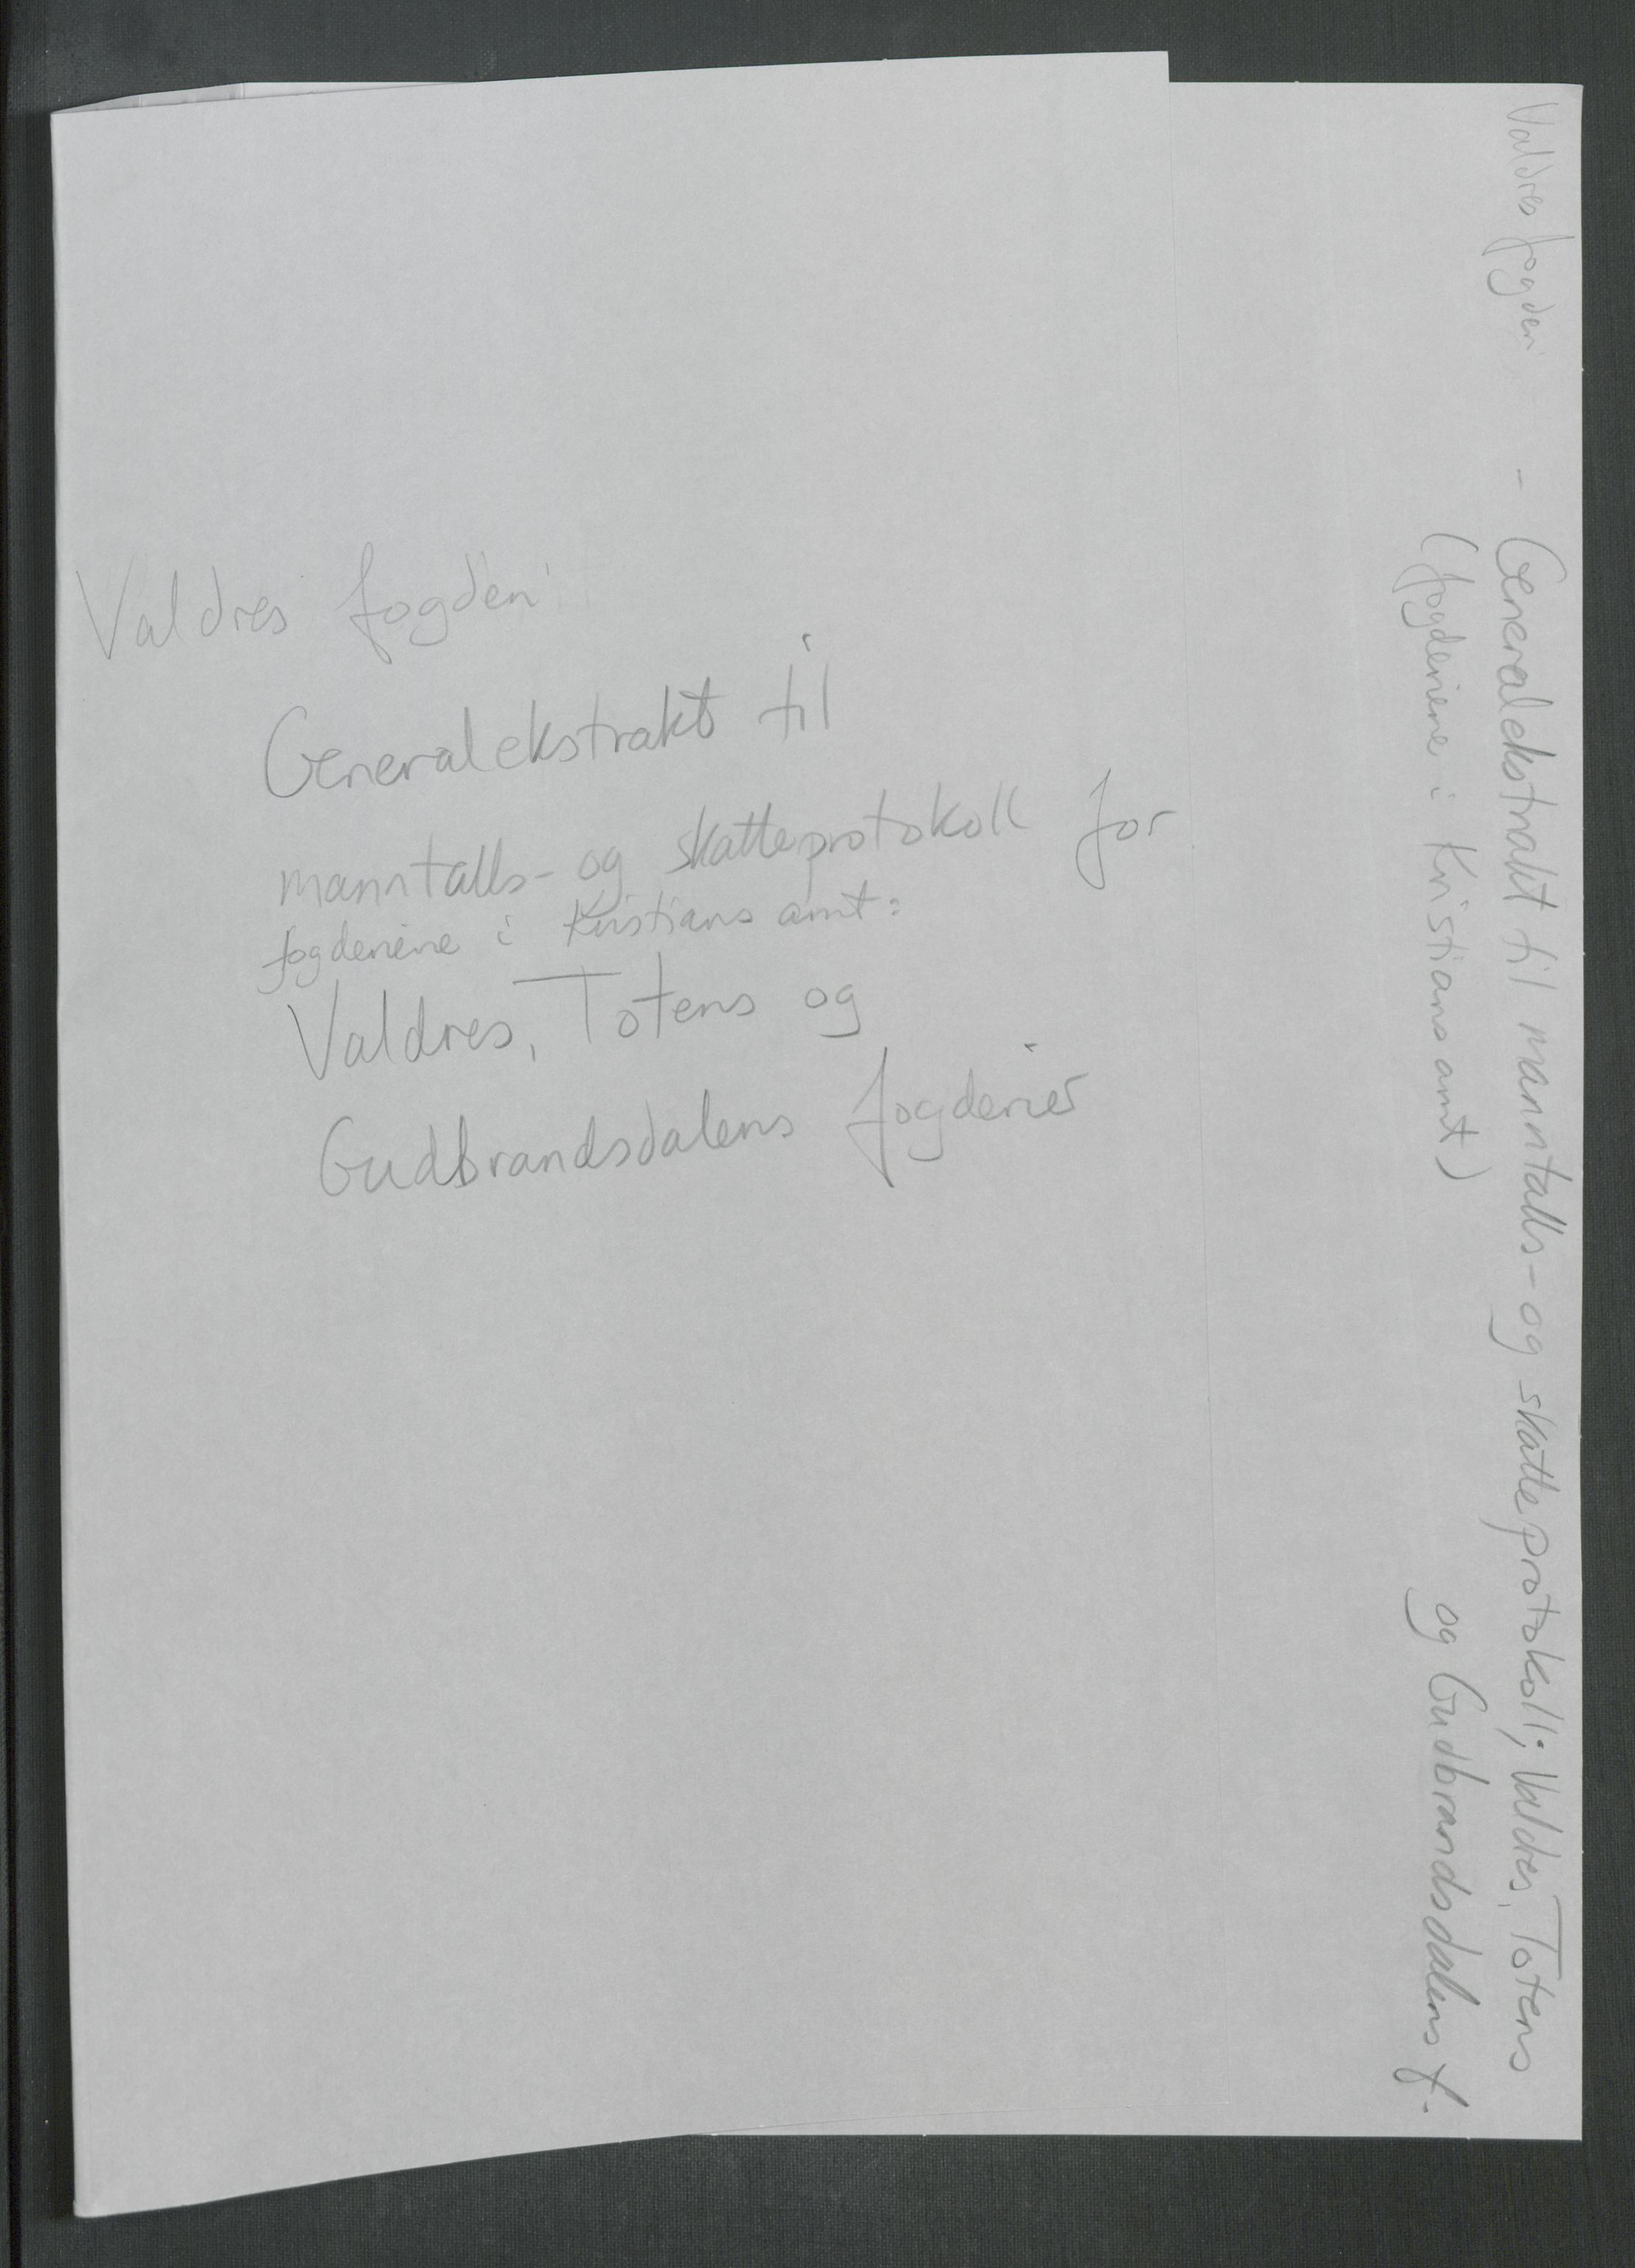 Valdres fogderi
Generalekstrakt til
manntalls- og skatteprotokoll for
fogderiene i Kristians amt:
Valdres, Totens og
Gudbrandsdalens fogderier
Valdres fogderi - Generalekstrakt til manntalls- og skatteprotokoll; Valdres, Totens
(fogderiene i Kristians amt) og Gudbrandsdalens f.